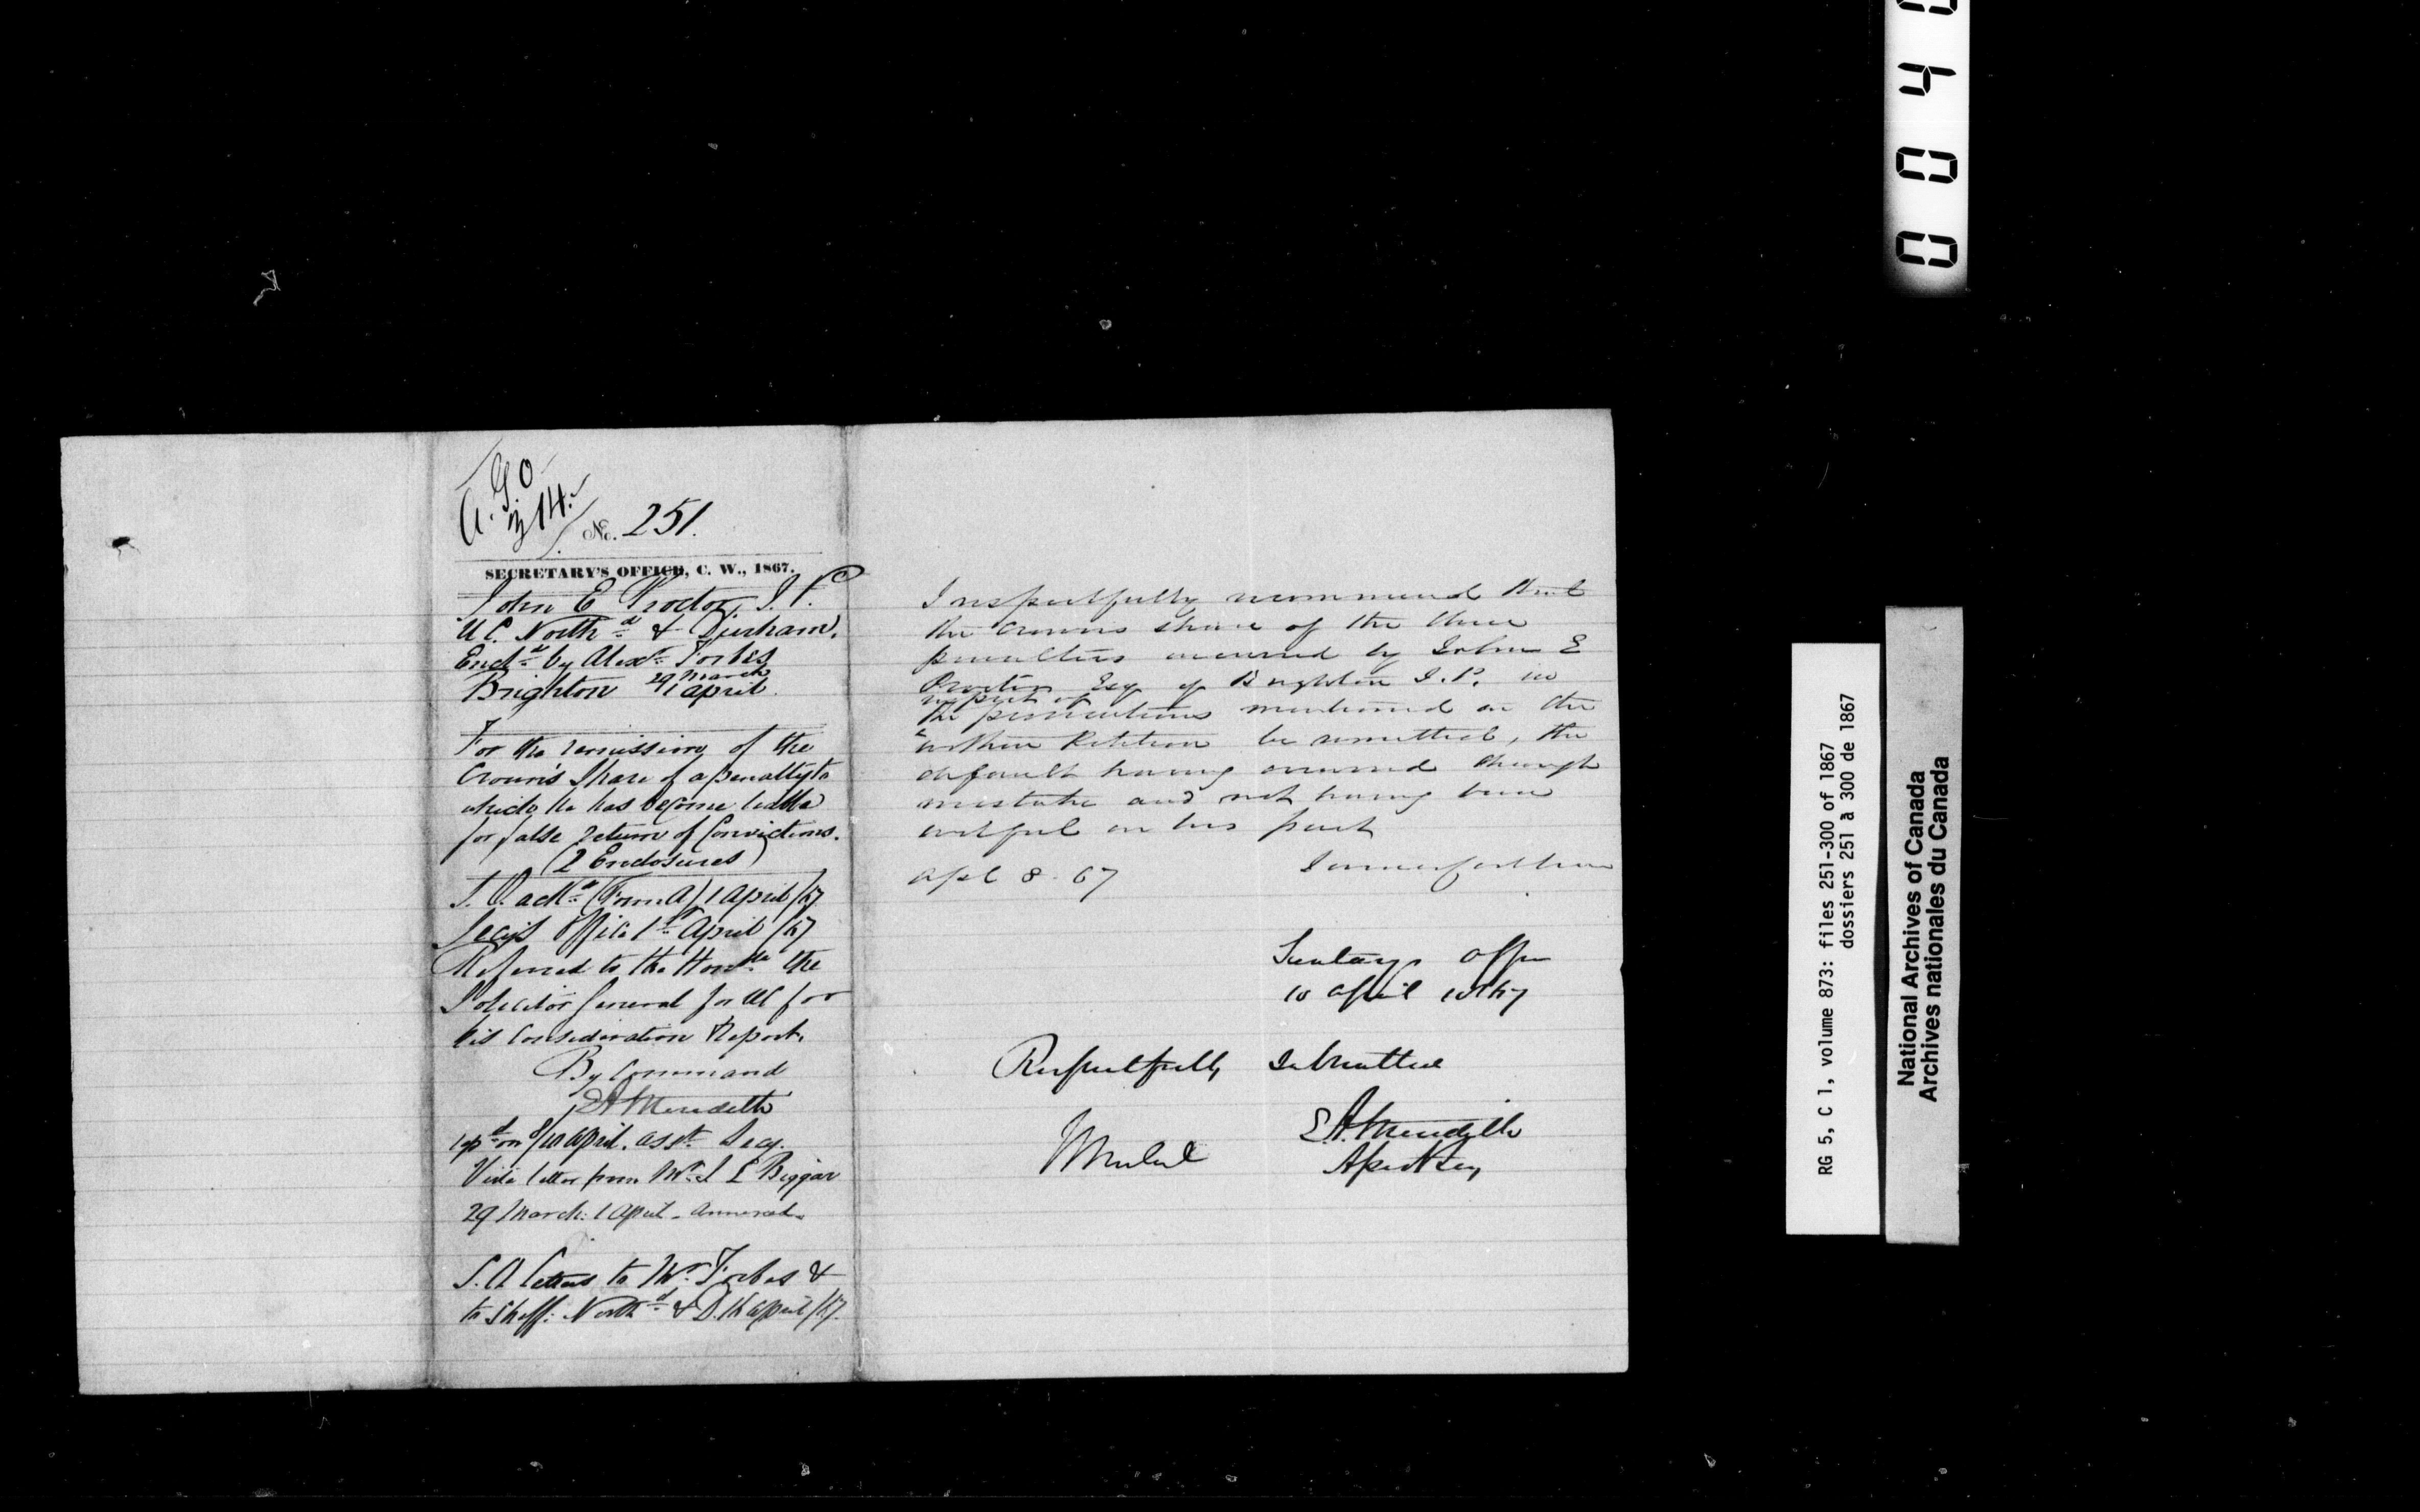 A. G. O
314.
No. 251.
SECRETARY'S OFFICE, C. W., 1867.
John E Proctor, J. P.
U C. North^d & Durham.
Encl^d by Alex^r Forbes
Brighton 29 March
1 april.
For the remission of the
Crown's Share of a penalty to
which he has become liable
for false return of Convictions.
(2 Enclosures)
ack^d (Form A) 1 April /67
Sec'y's Office 1^st April /67
Referred to the Hon^ble the
Solicitor General for UC for
his Consideration & Report.
By Command
E A Meredith
on 8/10 April. Ass^t Secy.
Vide letter from M^r J L Biggar
29 March. 1 April - annexed.
letters to M^r Forbes &
to Sheff. North^d & D. 16 April /67.
I respectfully recommend that
the Crowns share of the three
penalties incurred by John E
Proctor Esq of Brighton J. P. in
respect of
the prosecutions mentioned in the
within Petition be remitted, the
default having occurred through
mistake and not having been
wilful on his part
Apl 8. 67
Secretarys Office
10 April 1867
Respectfully submitted
E. A. Meredith
Asst Secy
0 0 4
RG 5, C 1, volume 873: files 251-300 of 1867
dossiers 251 à 300 de 1867
National Archives of Canada
Archives nationales du Canada